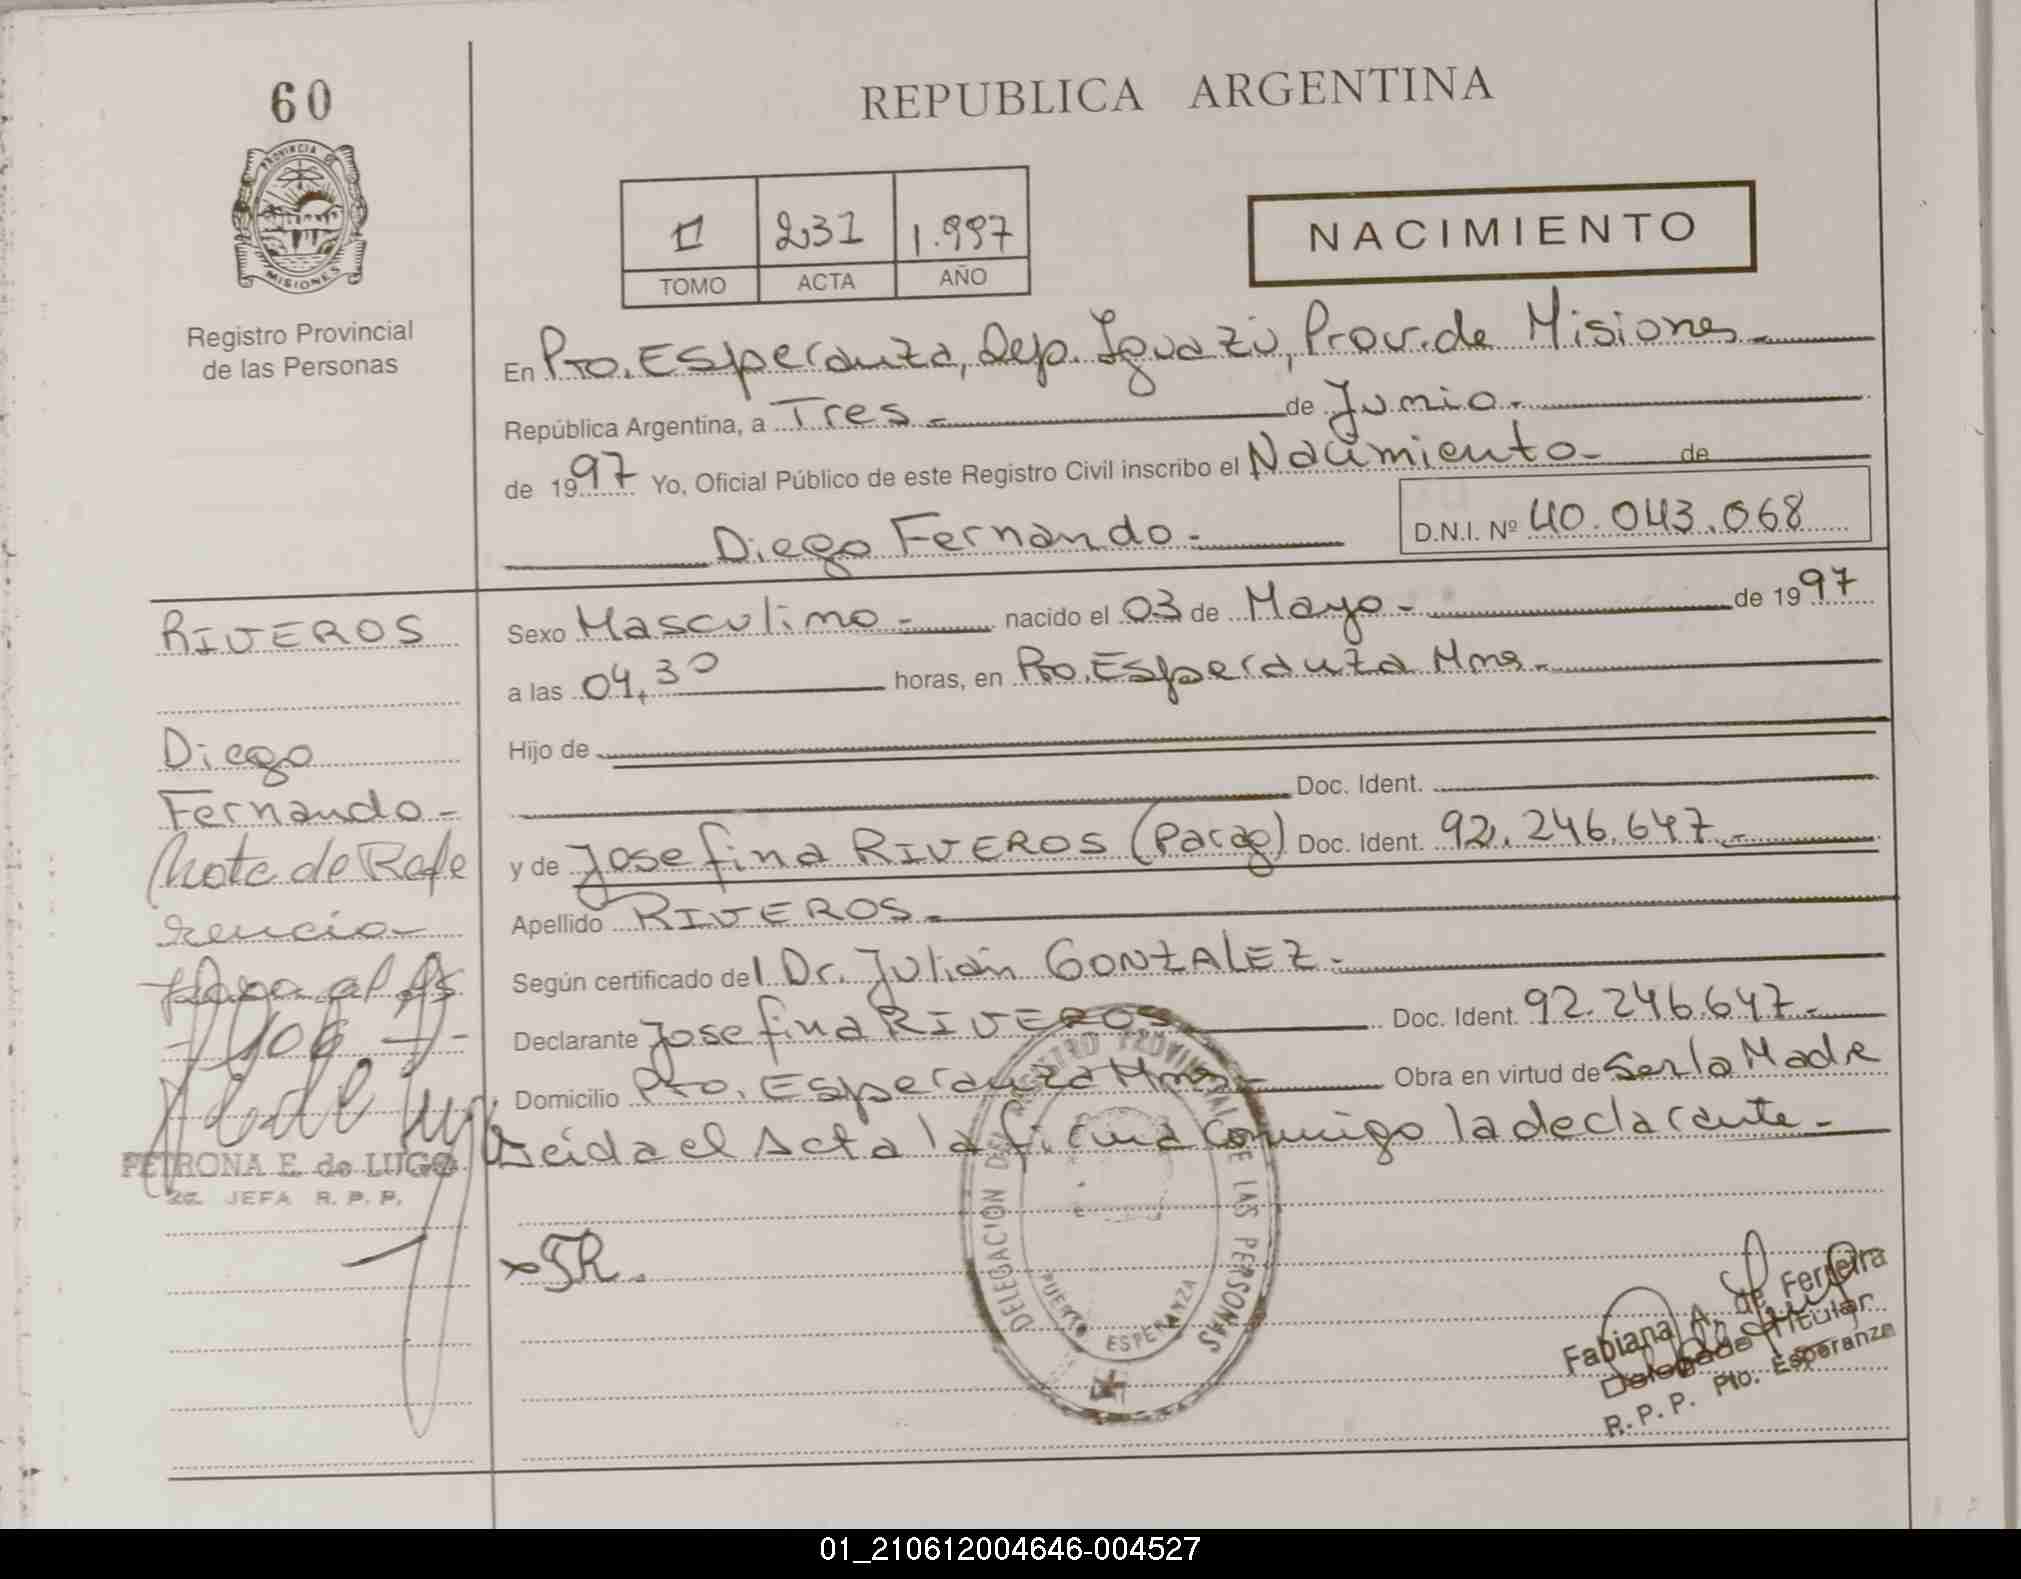 60
PROVINCIA DE
MISIONES
Registro Provincial
de las Personas
REPUBLICA ARGENTINA
231 1.997
TOMO ACTA AÑO
NACIMIENTO
En Pto. Esperanza, Dep. Iguazú, Prov. de Misiones -
República Argentina, a Tres - de Junio -
de 1997 Yo, Oficial Público de este Registro Civil inscribo el Nacimiento - de
Diego Fernando -
D.N.I. Nº 40.043.068
RIVEROS
Diego
Fernando -
Nota de Refe
rencia -
PETRONA E. de LUGO
JEFA R. P. P.
Sexo Masculino - nacido el 03 de Mayo - de 1997
a las 04,30 horas, en Pto. Esperanza Mnes -
Hijo de
Doc. Ident.
y de Josefina RIVEROS (Parag) Doc. Ident. 92.246.647 -
Apellido RIVEROS -
Según certificado del Dr. Julián GONZALEZ -
Declarante Josefina RIVEROS Doc. Ident. 92.246.647 -
Domicilio Pto. Esperanza Mnes - Obra en virtud de Ser la Madre
Leída el Acta la firma conmigo la declarante -
x JR.
DELEGACION DEL REGISTRO PROVINCIAL DE LAS PERSONAS
PUERTO ESPERANZA
Fabiana A. de Ferreira
Delegada Titular
R.P.P. Pto. Esperanza
01_210612004646-004527